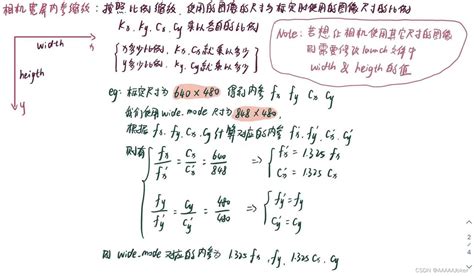 相机宽高内参缩放：按照比例缩放，使用的图像的尺寸与标定时使用的图像尺寸的比例
fx, fy, cx, cy 乘以各自的比例
x
width
{ 为多少比例，fx, cx 就乘以多少
为多少比例，fy, cy 就乘以多少
Note：若想让相机使用其它尺寸的图像
则需要修改 launch 文件中
width & heigth 的值
heigth
y
eg: 标定尺寸为 640×480 得到内参 fx fy cx cy
我们使用 wide_mode 尺寸为 848×480,
根据 fx, fy, cx, cy 计算对应的内参 fx' fy' cx' cy'
则有
fx/fx' = cx/cx' = 640/848 ⇒ { fx' = 1.325 fx
cx' = 1.325 cx
fy/fy' = cy/cy' = 480/480 ⇒ { fy' = fy
cy' = cy
则 wide_mode 对应的内参为 1.325 fx, fy, 1.325 cx, cy
2
/
4